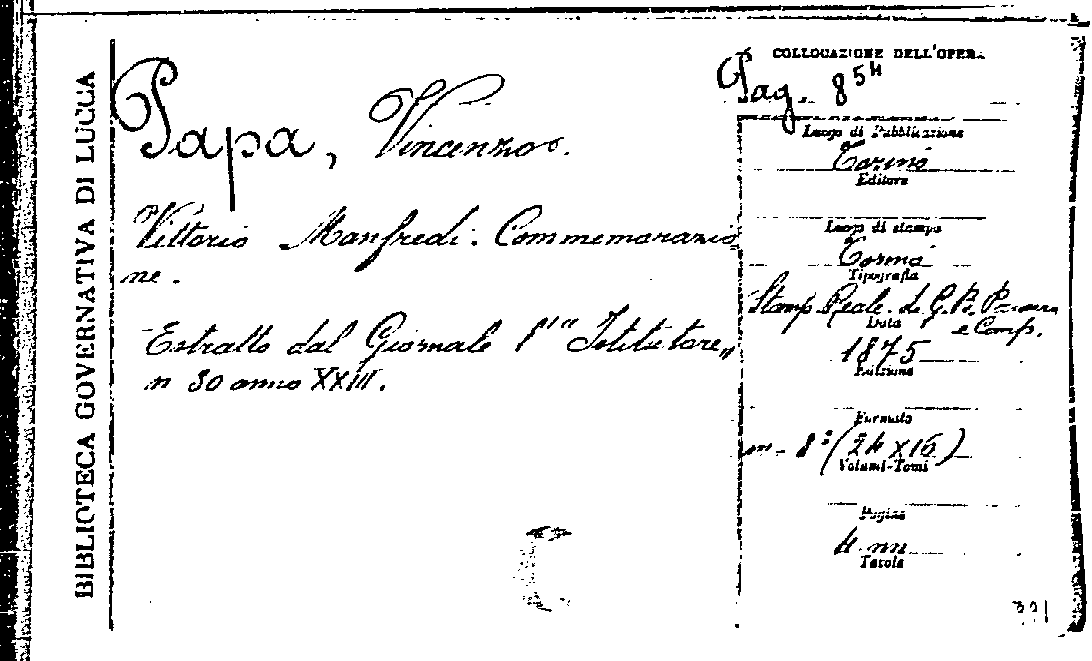 BIBLIOTECA GOVERNATIVA DI LUCCA
Papa, Vincenzo.
Vittorio Manfredi. Commemorazio
ne.
Estratto dal Giornale l'"Istitutore„
n 30 anno XXIII.
COLLOCAZIONE DELL'OPERA
Pag. 854
Luogo di Pubblicazione
Torino
Editore
Luogo di stampa
Torino
Tipografia
Stamp. Reale. di G. B. Paravia
e Comp.
Data
1875
Edizione
Formato
in-8° (24x16)
Volumi-Tomi
Pagine
4 nn
Tavole